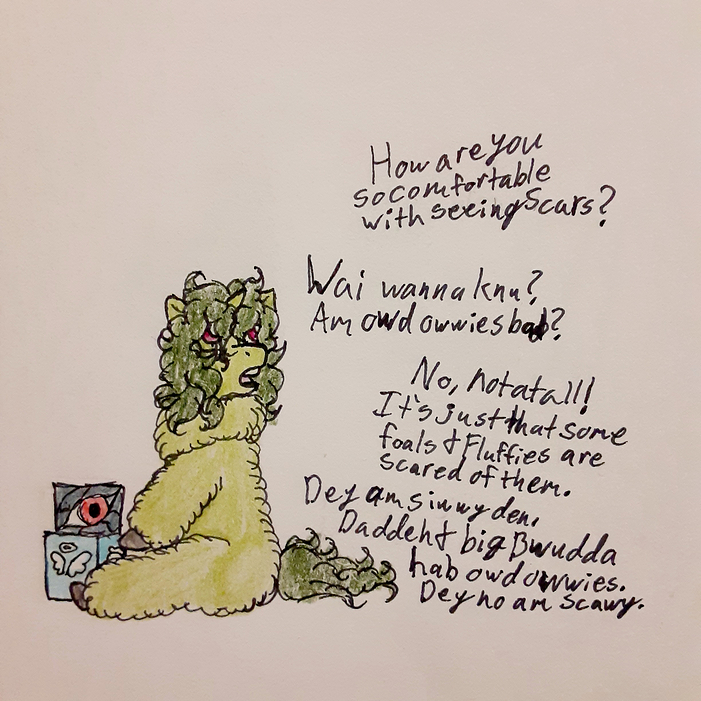 How are you
so comfortable
with seeing Scars?
Wai wanna knu?
Am owd owwies bad?
No, not at all!
It's just that some
foals & Fluffies are
scared of them.
Dey am siwwy den.
Daddeh & big Bwudda
hab owd owwies.
Dey no am scawy.